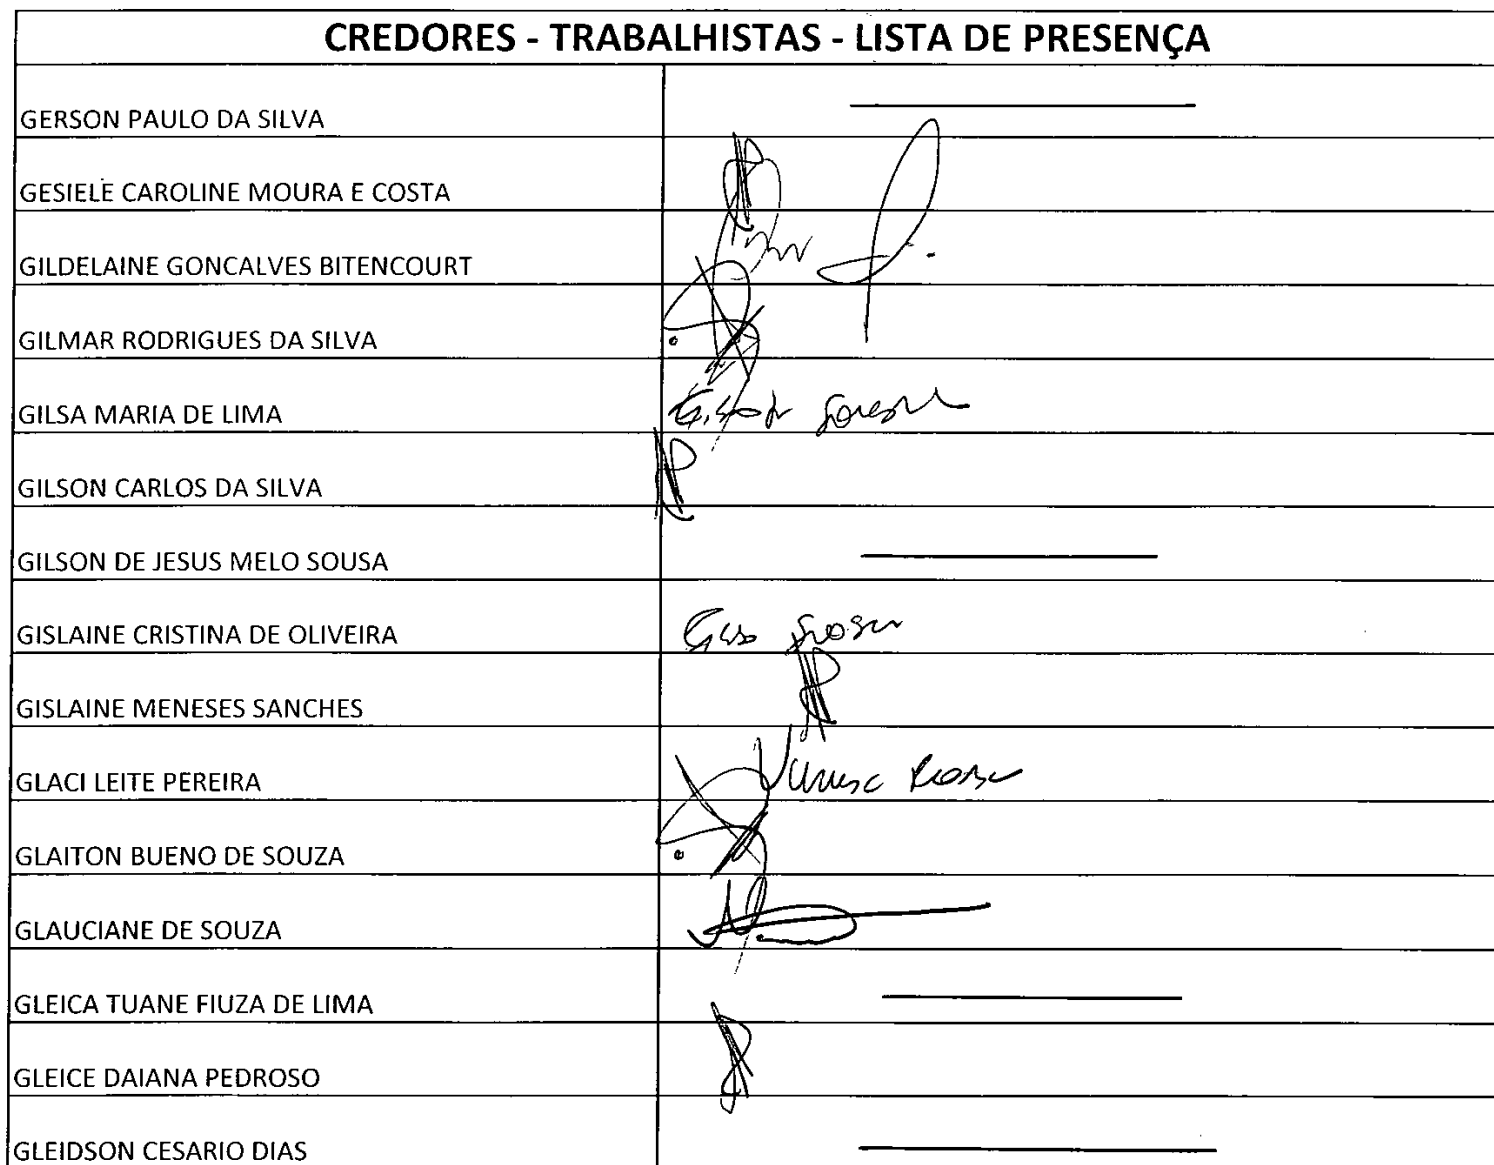 CREDORES - TRABALHISTAS - LISTA DE PRESENÇA
GERSON PAULO DA SILVA
GESIELE CAROLINE MOURA E COSTA
GILDELAINE GONCALVES BITENCOURT
GILMAR RODRIGUES DA SILVA
GILSA MARIA DE LIMA
GILSON CARLOS DA SILVA
GILSON DE JESUS MELO SOUSA
GISLAINE CRISTINA DE OLIVEIRA
GISLAINE MENESES SANCHES
GLACI LEITE PEREIRA
GLAITON BUENO DE SOUZA
GLAUCIANE DE SOUZA
GLEICA TUANE FIUZA DE LIMA
GLEICE DAIANA PEDROSO
GLEIDSON CESARIO DIAS